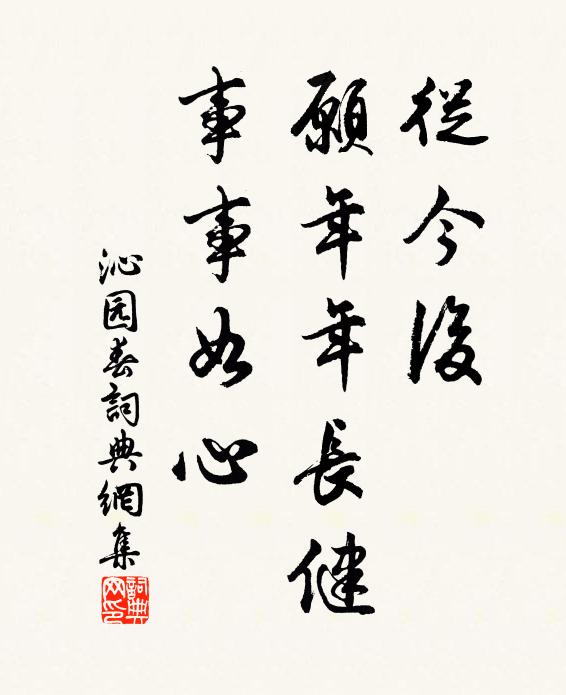 從今後
願年年長健
事事如心
沁园春詞典網集
詞典网印